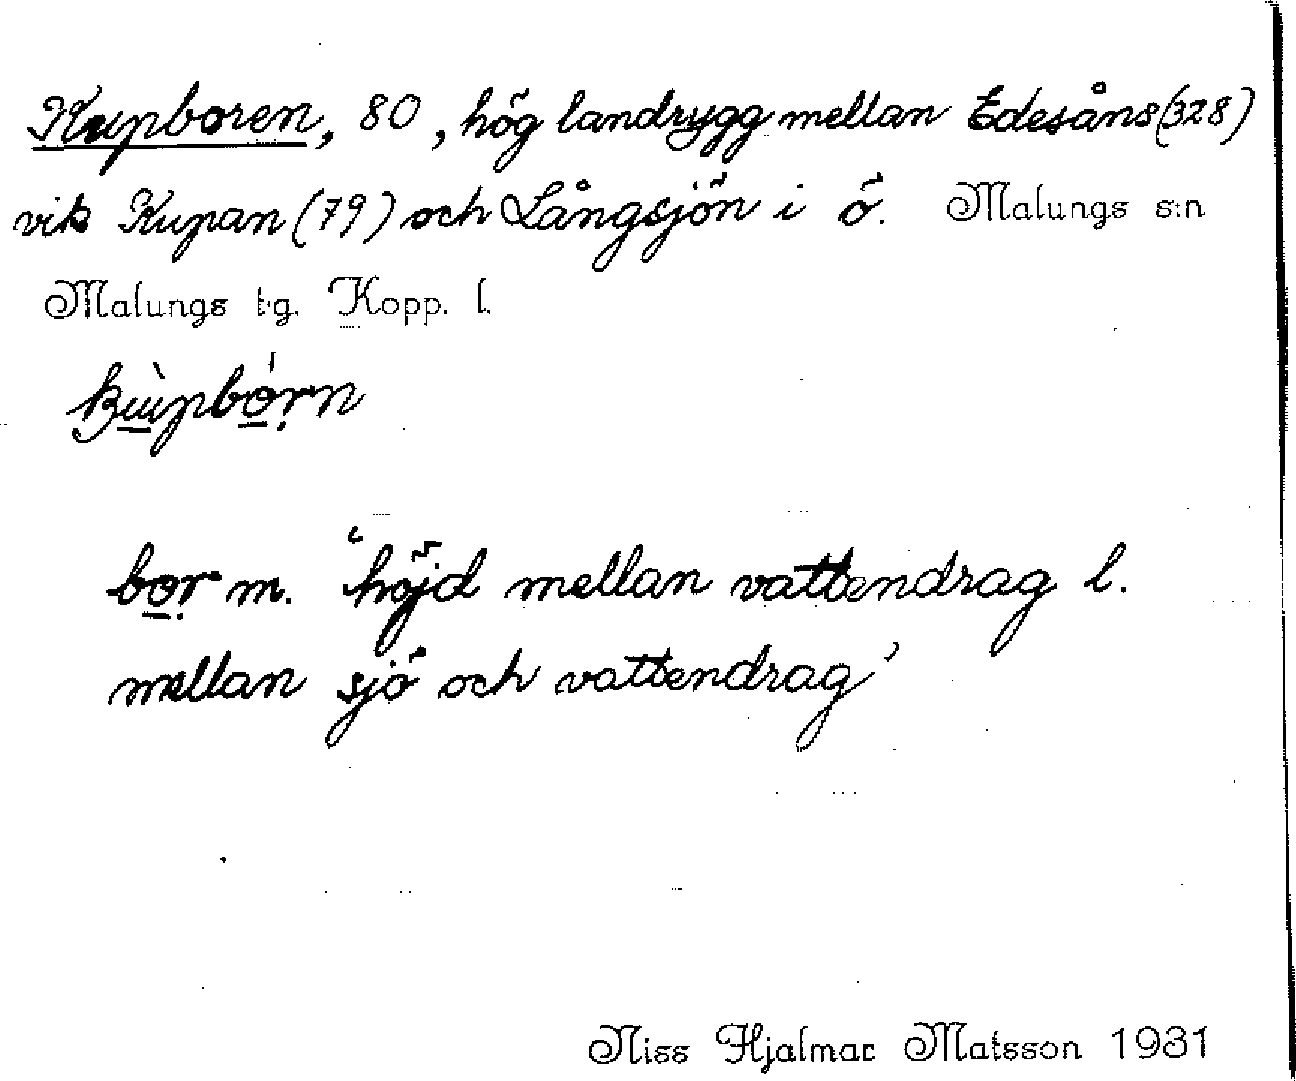 Kupboren, 80, hög landrygg mellan Edesåns (328)
vik Kupan (79) och Långsjön i ö. Malungs s:n
Malungs tg. Kopp. l.
kùpbórn
bor m. ‘höjd mellan vattendrag l.
mellan sjö och vattendrag’
Niss Hjalmar Matsson 1931